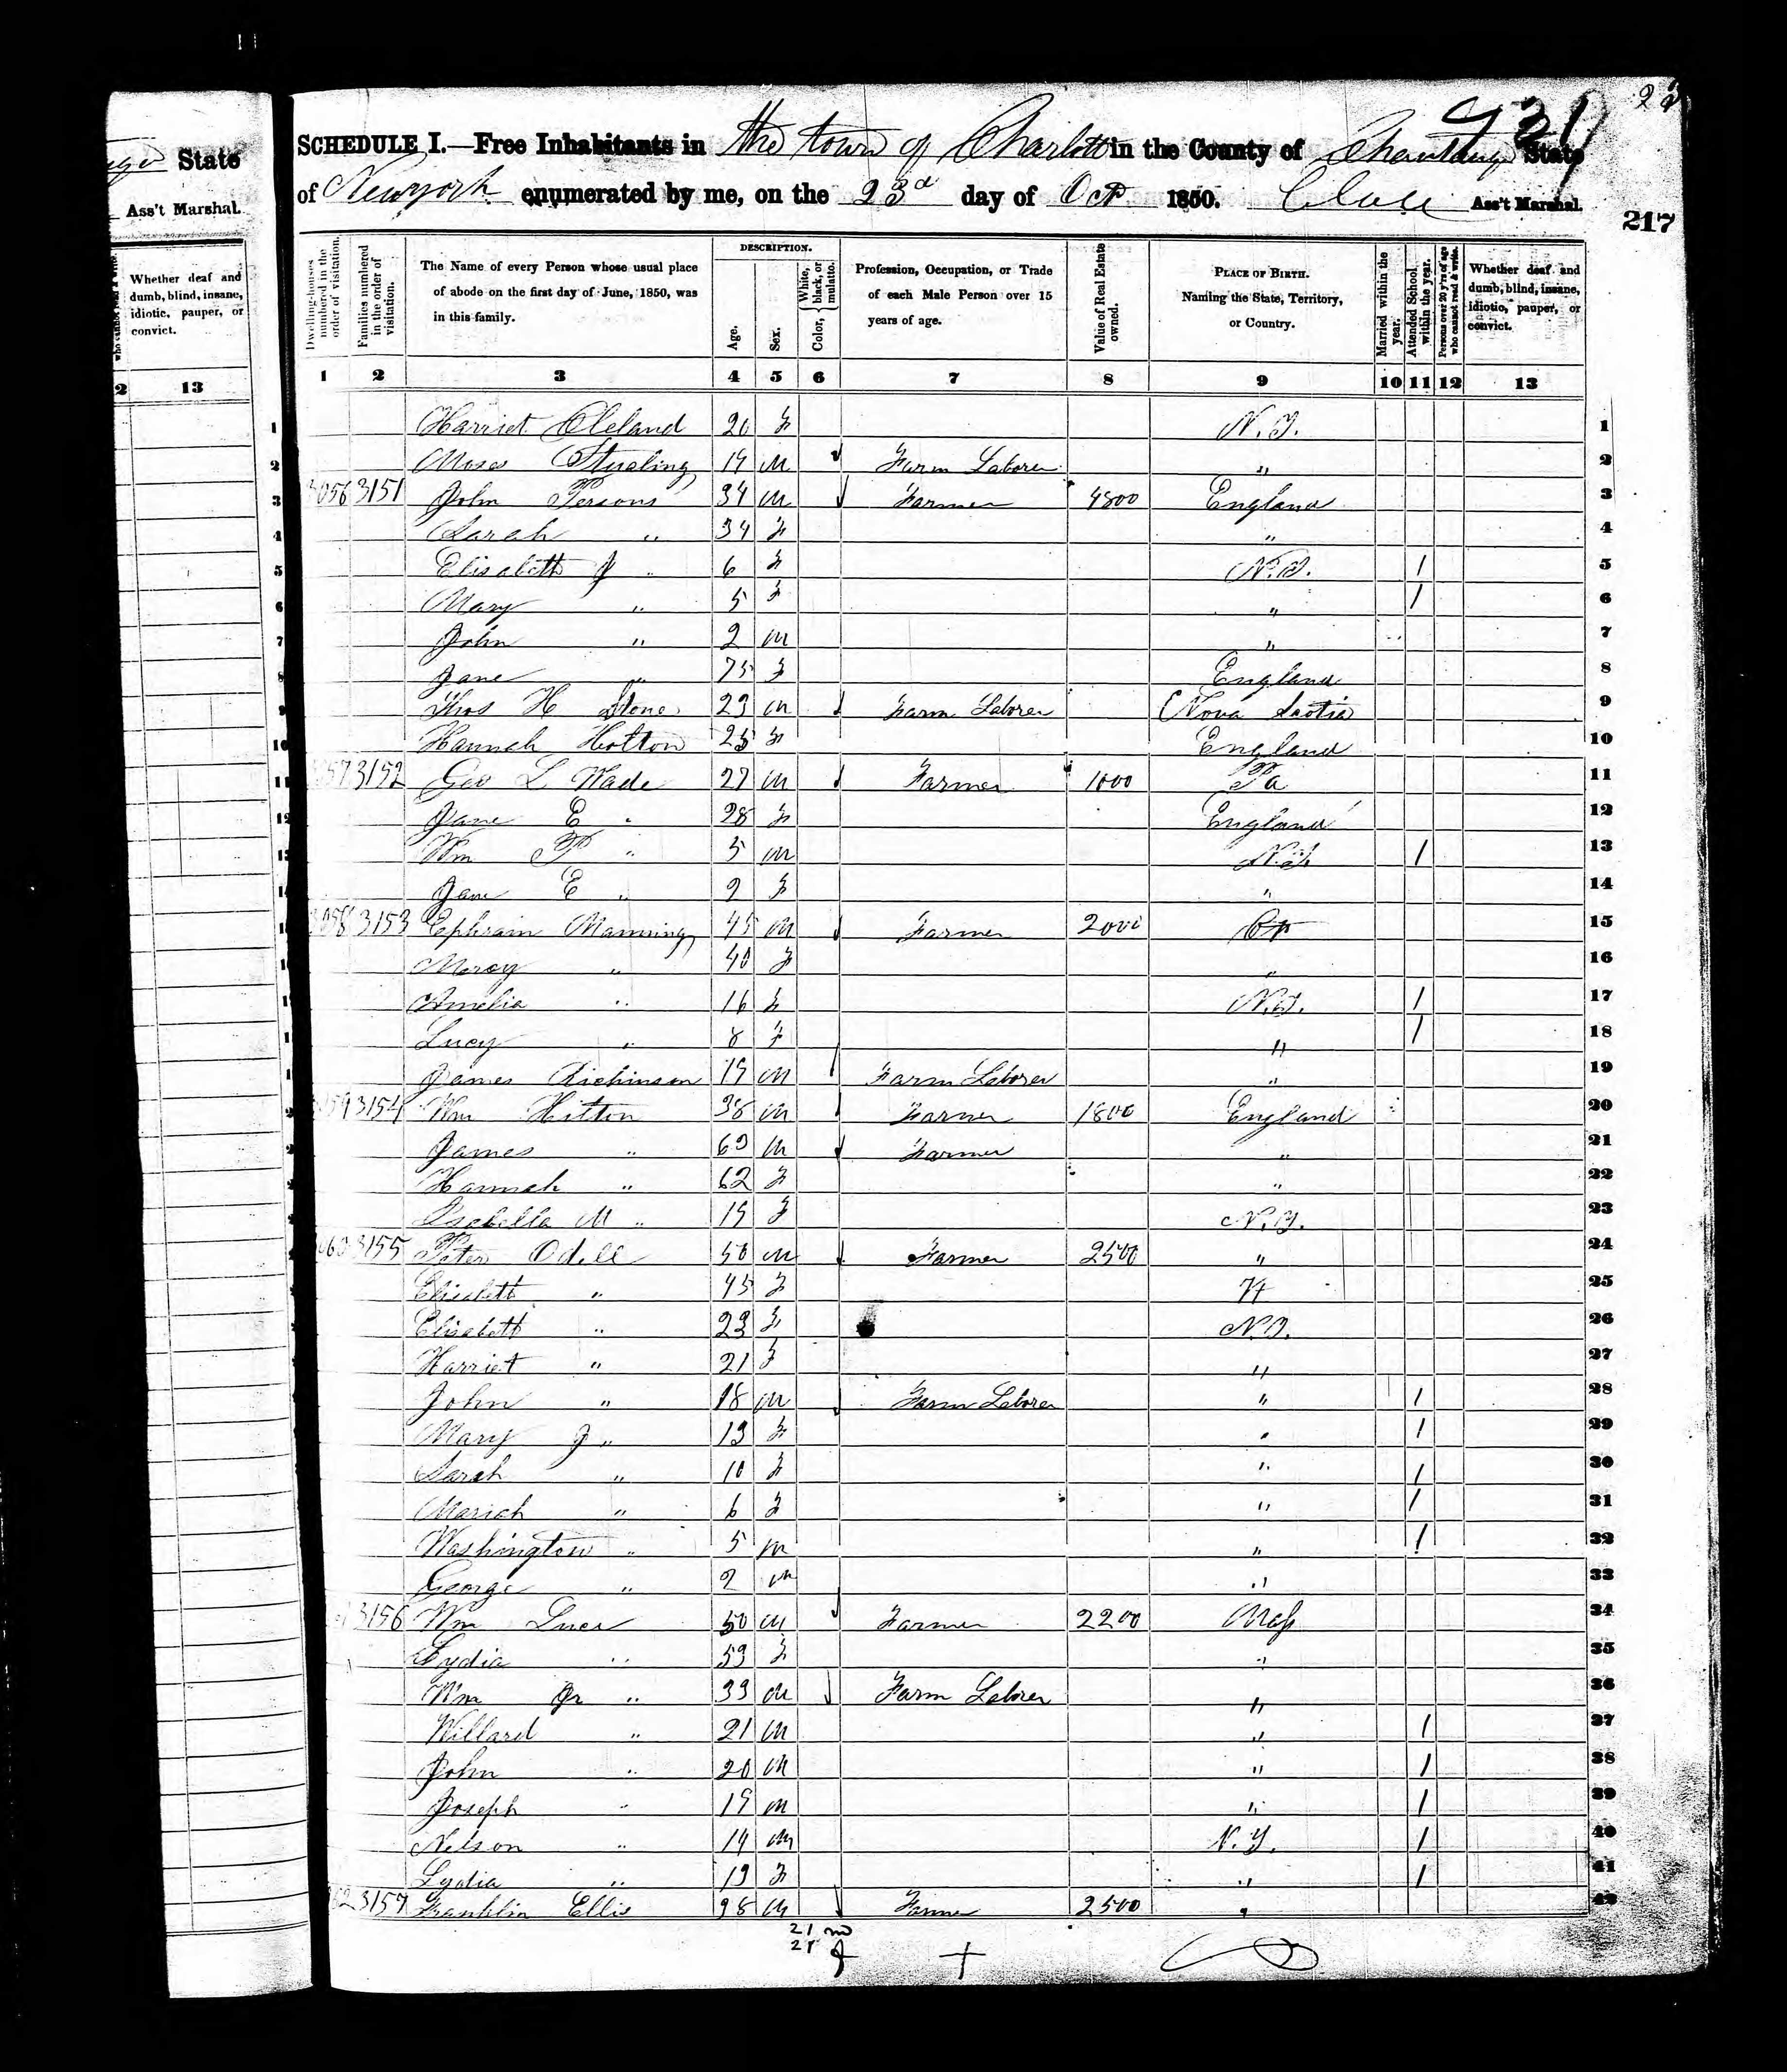 931
217
State
Ass't Marshal.
Whether deaf and dumb, blind, insane, idiotic, pauper, or convict.
2 13
SCHEDULE I.—Free Inhabitants in the town of Charlott in the County of Chautauque State
of Newyork enumerated by me, on the 23d day of Oct 1850. Ass't Marshal.
Dwelling-houses numbered in the order of visitation.
Families numbered in the order of visitation.
The Name of every Person whose usual place of abode on the first day of June, 1850, was in this family.
DESCRIPTION.
Age.
Sex.
Color, White, black, or mulatto.
Profession, Occupation, or Trade of each Male Person over 15 years of age.
Value of Real Estate owned.
PLACE OF BIRTH. Naming the State, Territory, or Country.
Married within the year.
Attended School within the year.
Persons over 20 y'rs of age who cannot read & write.
Whether deaf and dumb, blind, insane, idiotic, pauper, or convict.
1 2 3 4 5 6 7 8 9 10 11 12 13
1 Harriet Cleland 20 F N.Y. 1
2 Moses 19 M Farm Laborer " 2
3 3056 3151 John Persons 34 M Farmer 4800 England 3
4 Sarah " 34 F " 4
5 Elisabeth J " 6 F N.Y. / 5
6 Mary " 5 F " / 6
7 John " 2 M " 7
8 Jane " 75 F England 8
9 Thos H Stone 23 M Farm Laborer Nova Scotia 9
10 Hannah Hotton 25 F England 10
11 3057 3152 Geo L Wade 27 M Farmer 1000 Pa 11
12 Jane E " 28 F England 12
Wm P " 5 M N.Y. / 13
Jane E " 2 F " 14
3058 3153 Ephraim Manning 45 M Farmer 2000 Ct 15
Mercy " 40 F " 16
Amelia " 16 F N.Y. / 17
Lucy " 8 F " / 18
James Dickinson 19 M Farm Laborer " 19
3059 3154 Wm Hotton 38 M Farmer 1800 England 20
James " 63 M Farmer " 21
Hannah " 62 F " 22
Isabella M " 19 F N.Y. 23
3060 3155 Peter Odell 50 M Farmer 2500 " 24
Elisabeth " 45 F Vt 25
Elisabeth " 23 F N.Y. 26
Harriet " 21 F " 27
John " 18 M Farm Laborer " / 28
Mary J " 13 F " / 29
Sarah " 10 F " / 30
Mariah " 6 F " / 31
Washington " 5 M " / 32
George " 2 M " 33
3156 Wm Luce 50 M Farmer 2200 Mass 34
Lydia " 53 F " 35
Wm Jr " 33 M Farm Laborer " 36
Willard " 21 M " / 37
John " 20 M " / 38
Joseph " 19 M " / 39
Nelson " 14 M N.Y. / 40
Lydia " 13 F " / 41
62 3157 Franklin Ellis 38 M Farmer 2500 " 42
21 m
21 f